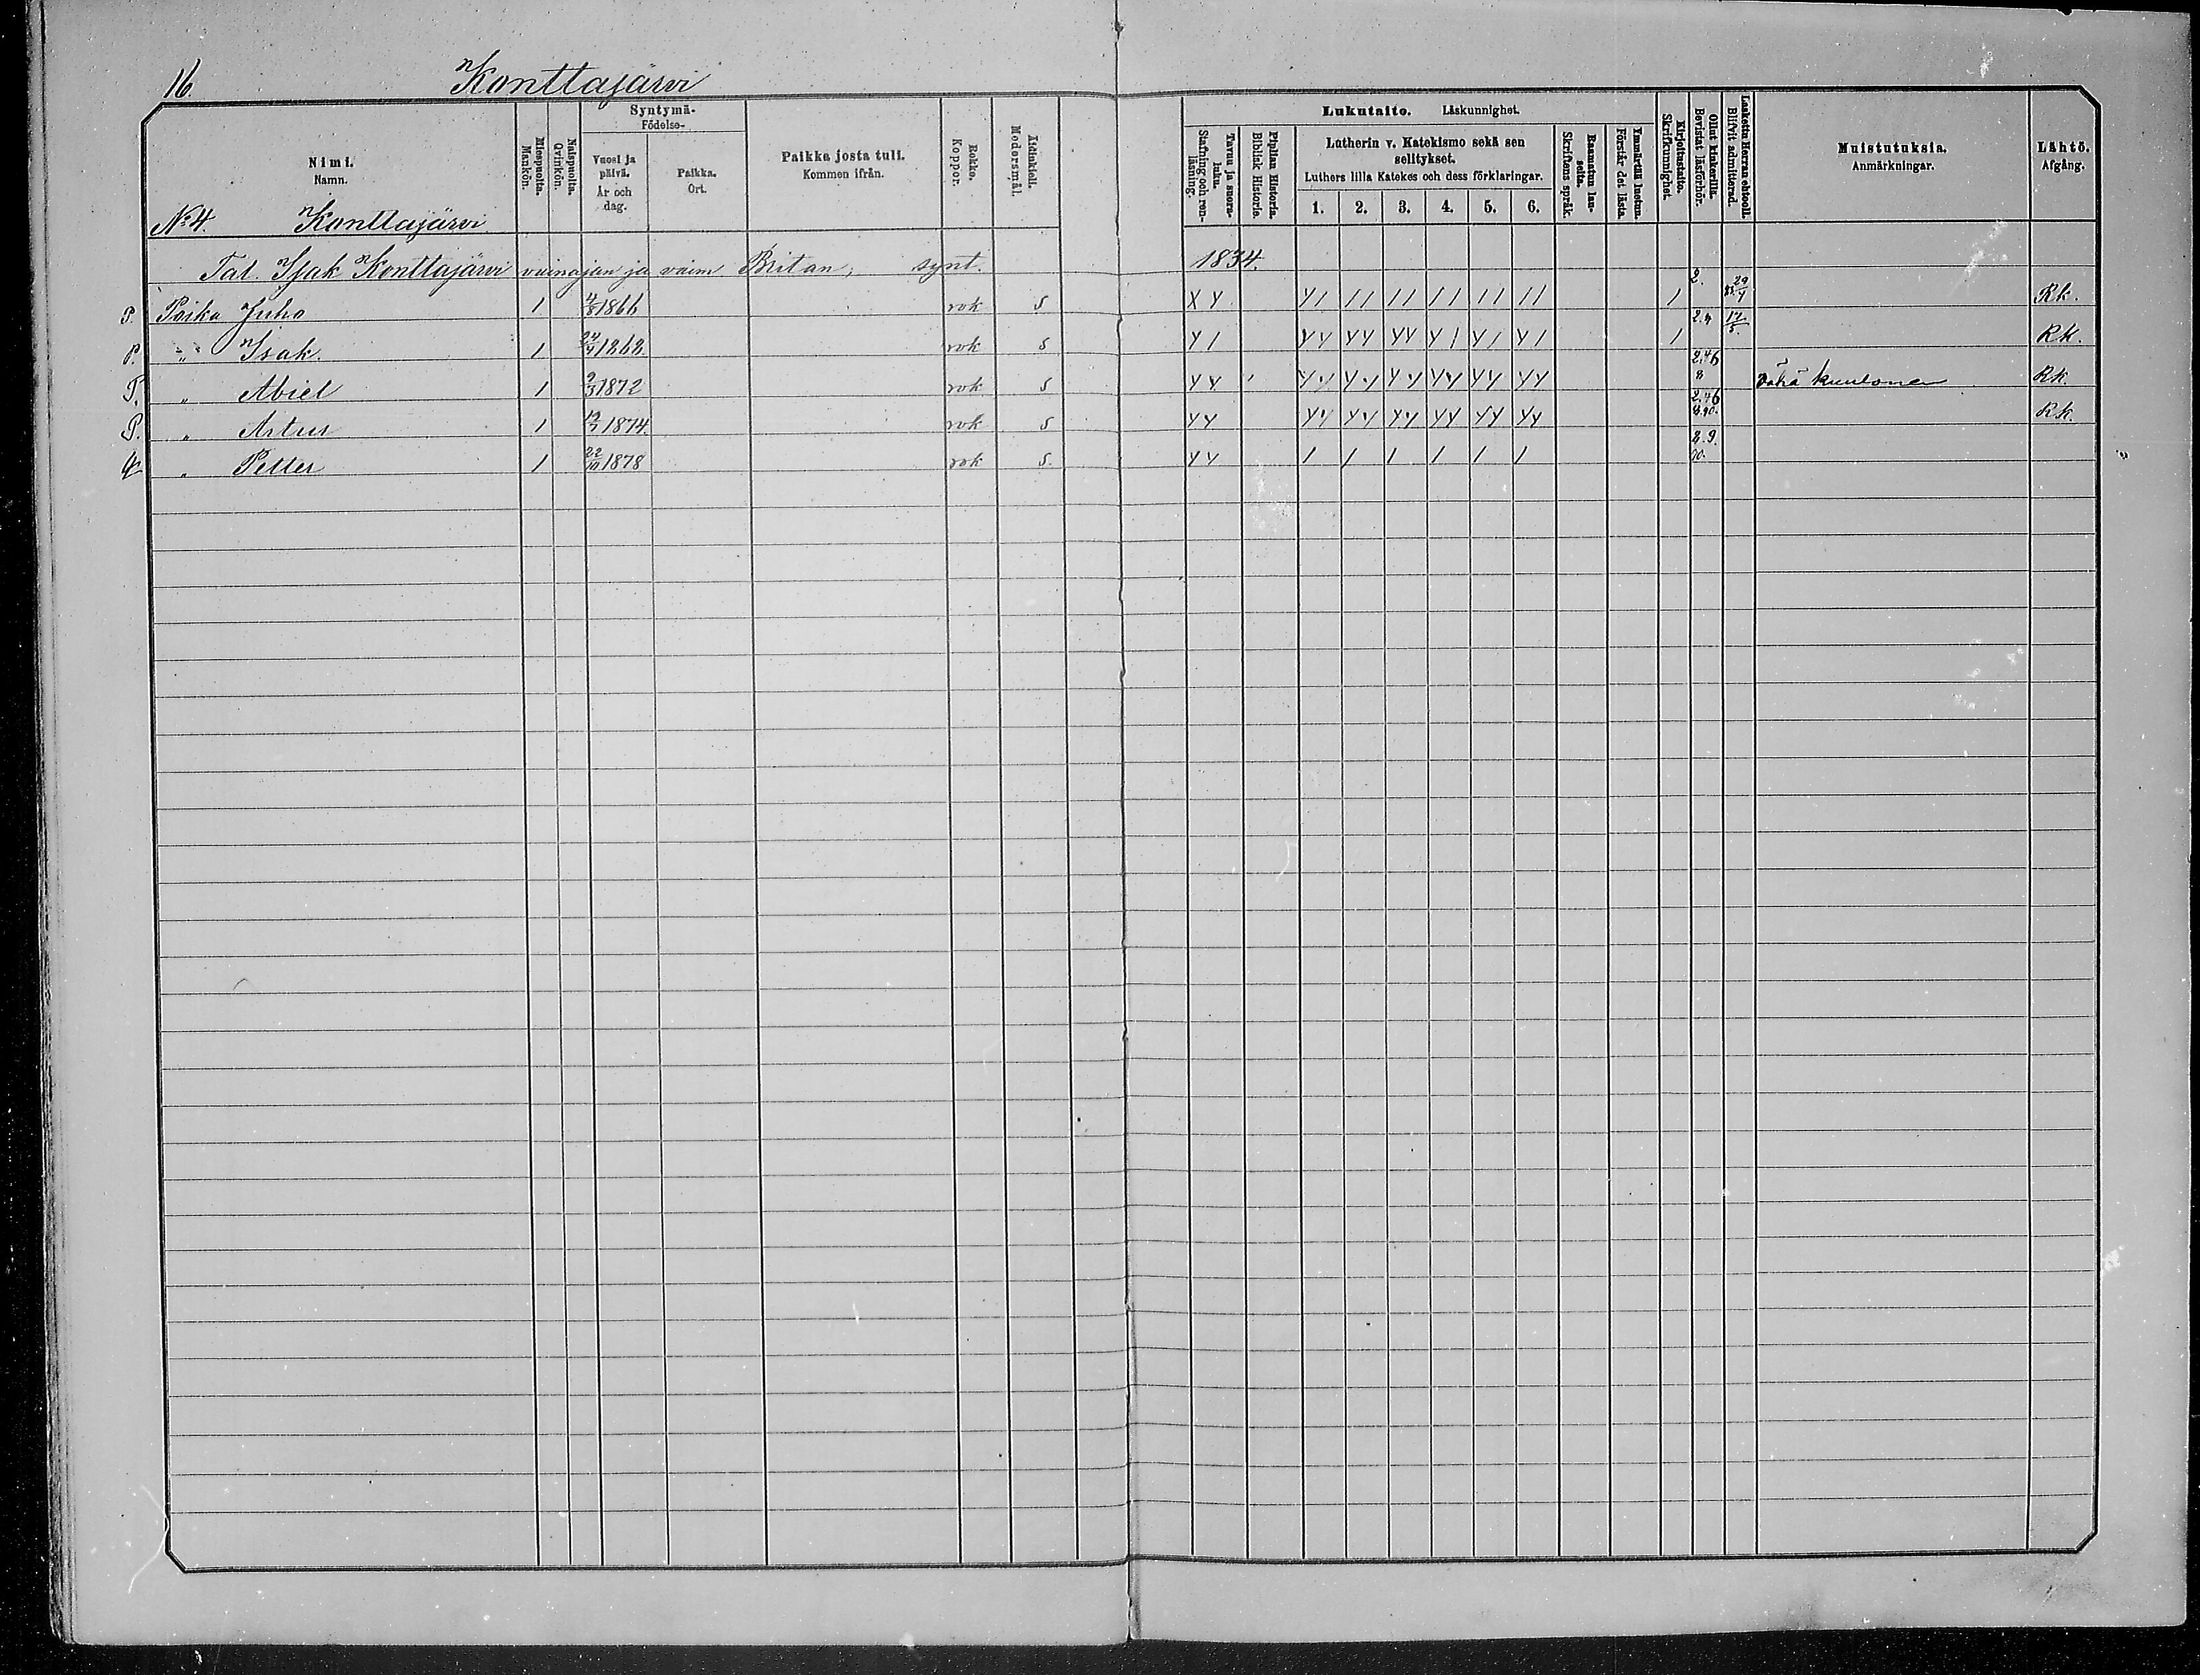 16 Konttajärvi
Nimi.
Namn.
Miespuolta.
Mankön.
Naispuolta.
Qvinkön.
Syntymä-
Födelse-
Vuosi ja päivä.
År och dag.
Paikka.
Ort.
Paikka josta tuli.
Kommen ifrån.
Rokko.
Koppor.
Äidinkieli.
Modersmål.
Lukutaito. Läskunnighet.
Tavuu ja suora-luku.
Stafning och ren-läsning.
Piplian Historia.
Biblisk Historie.
Lutherin v. Katekismo sekä sen
selitykset.
Luthers lilla Katekes och dess förklaringar.
1. 2. 3. 4. 5. 6.
Raamatun lau-seita.
Skriftens språk.
Ymmärtää luetun.
Förstår det lästa.
Kirjoitustaito.
Skrifkunnighet.
Ollut kinkerillä.
Bevistat läsförhör.
Laskettu Herran ehtooll.
Blifvit admitterad.
Muistutuksia.
Anmärkningar.
Lähtö.
Afgång.
No 4. Konttajärvi
Tal. Isak Konttajärvi vainajan ja vaim Britan, synt. 1834.
P. Poika Juho 1 4/8 1866 rok S 2. 29/4 Rk.
P. " Isak. 1 24/4 1868 rok S 17/5. Rk.
T. " Abiel 1 9/3 1872 rok S 2.46 8 vähä kuuloinen Rk.
P. " Artur 1 12/7 1874. rok S 2.46 Rk.
" Petter 1 22/10 1878 rok S. 2.9. 90.